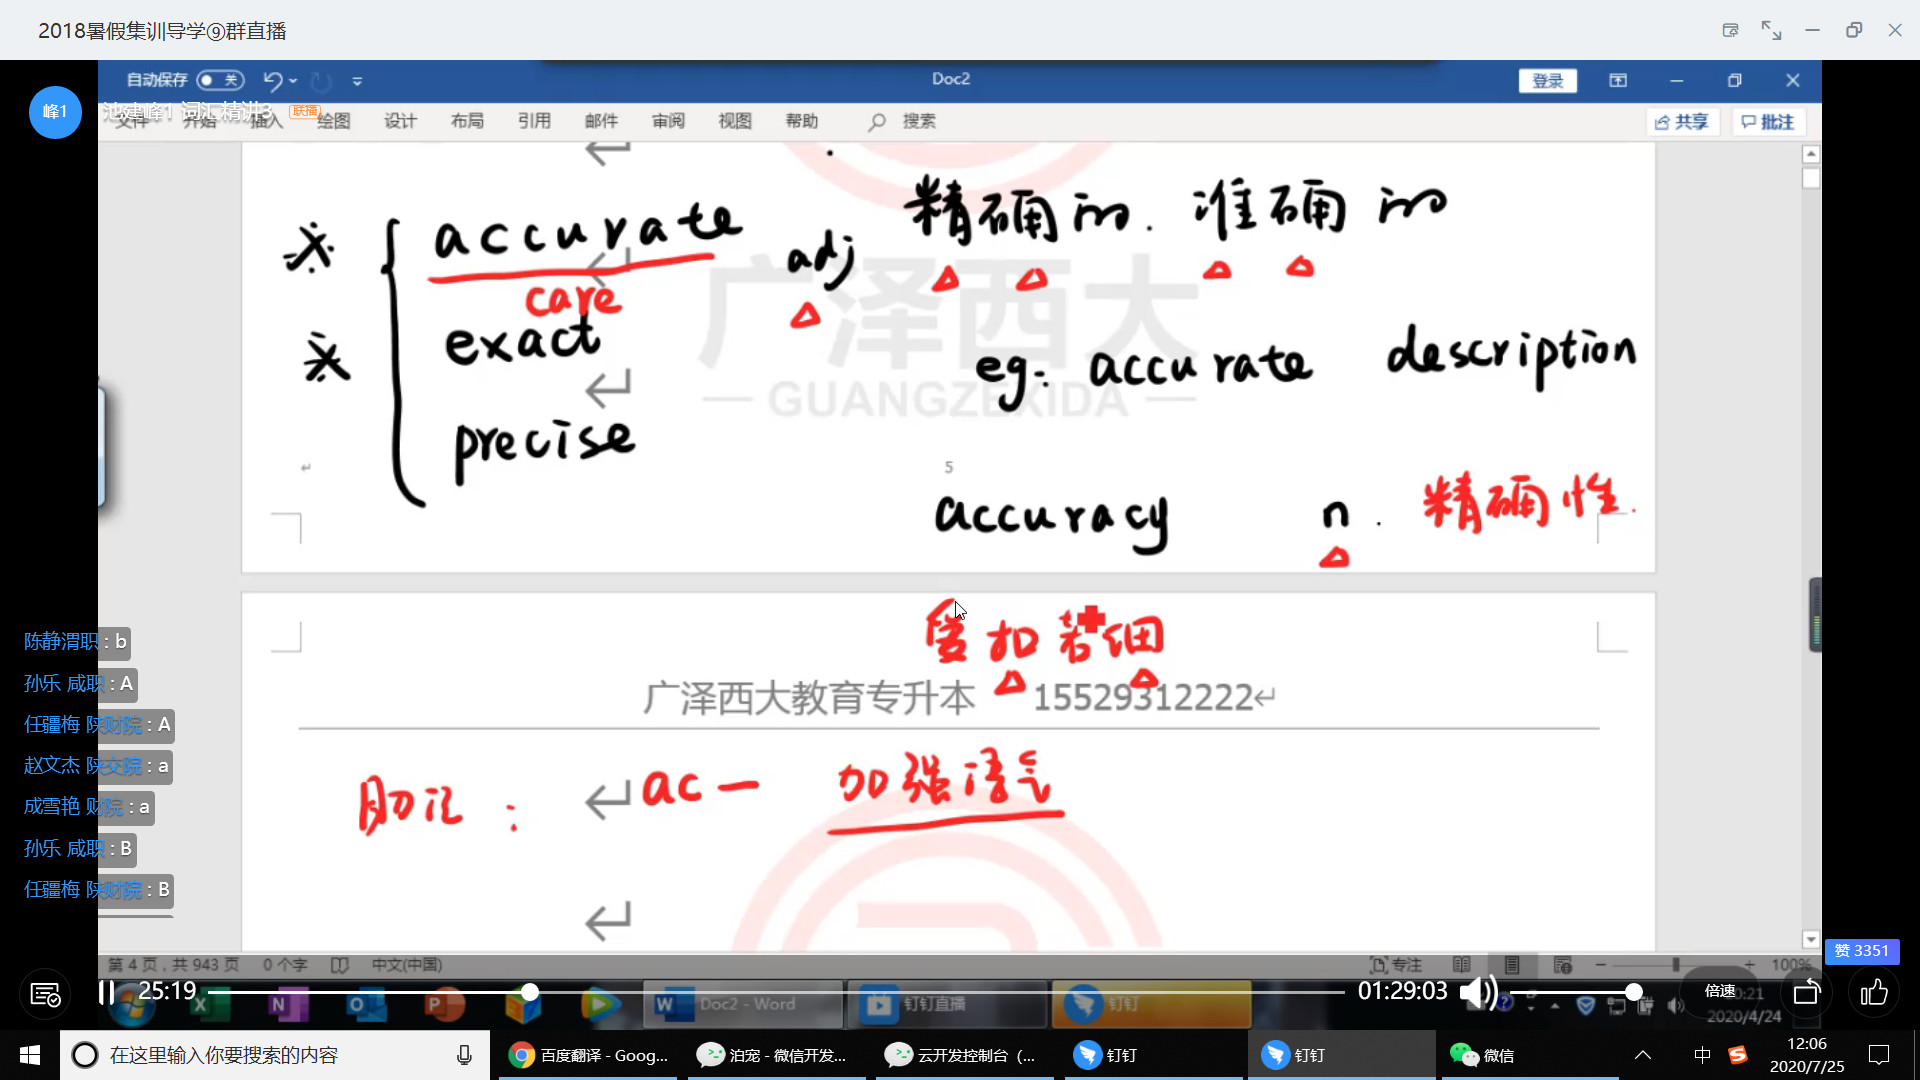 2018暑假集训导学⑨群直播
自动保存 关
Doc2
登录
峰1
池建峰1 词汇精讲3 联播
文件 开始 插入 绘图 设计 布局 引用 邮件 审阅 视图 帮助 搜索
共享 批注
accurate adj 精确的. 准确的
care
exact
eg: accurate description
precise
广泽西大
— GUANGZEXIDA —
5
accuracy n. 精确性.
扣 细
广泽西大教育专升本 15529312222
助记: ac — 加强语气
陈静渭职 : b
孙乐 咸职 : A
任疆梅 陕财院 : A
赵文杰 陕交院 : a
成雪艳 财院 : a
孙乐 咸职 : B
任疆梅 陕财院 : B
赞 3351
第 4 页,共 943 页 0 个字 中文(中国)
专注 100%
25:19
01:29:03
倍速
Doc2 - Word
钉钉直播
钉钉
2020/4/24
在这里输入你要搜索的内容
百度翻译 - Goog...
泊宠 - 微信开发...
云开发控制台 (...
钉钉
钉钉
微信
中
12:06
2020/7/25